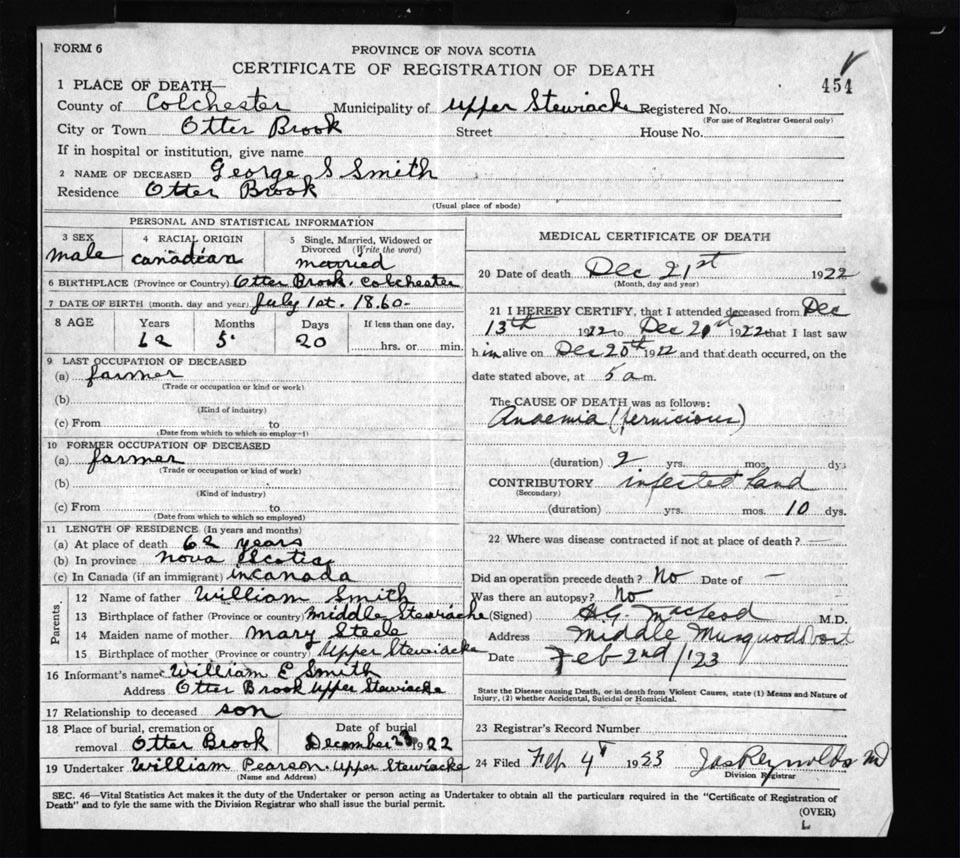 FORM 6
PROVINCE OF NOVA SCOTIA
CERTIFICATE OF REGISTRATION OF DEATH
454
1 PLACE OF DEATH—
County of Colchester Municipality of Upper Stewiacke Registered No.
(For use of Registrar General only)
City or Town Otter Brook Street House No.
If in hospital or institution, give name
2 NAME OF DECEASED George S Smith
Residence Otter Brook
(Usual place of abode)
PERSONAL AND STATISTICAL INFORMATION
3 SEX male
4 RACIAL ORIGIN canadian
5 Single, Married, Widowed or Divorced (Write the word) married
6 BIRTHPLACE (Province or Country) Otter Brook. Colchester
7 DATE OF BIRTH (month. day and year) July 1st. 1860
8 AGE Years Months Days If less than one day,
62 5 20 hrs. or min.
9 LAST OCCUPATION OF DECEASED
(a) farmer
(Trade or occupation or kind or work)
(b)
(Kind of industry)
(c) From to
(Date from which to which so employ
10 FORMER OCCUPATION OF DECEASED
(a) farmer
(Trade or occupation or kind of work)
(b)
(Kind of industry)
(c) From to
(Date from which to which so employed)
11 LENGTH OF RESIDENCE (In years and months)
(a) At place of death 62 years
(b) In province Nova Scotia
(c) In Canada (if an immigrant) in canada
Parents.
12 Name of father William Smith
13 Birthplace of father (Province or country) Middle Stewiacke
14 Maiden name of mother. Mary Steele
15 Birthplace of mother (Province or country) Upper Stewiacke
16 Informant's name William E Smith
Address Otter Brook Upper Stewiacke
17 Relationship to deceased son
18 Place of burial, cremation or removal Otter Brook
Date of burial December 23 1922
19 Undertaker William Pearson. Upper Stewiacke
(Name and Address)
MEDICAL CERTIFICATE OF DEATH
20 Date of death Dec 21st 1922
(Month, day and year)
21 I HEREBY CERTIFY, that I attended deceased from Dec
13th 1922 to Dec 1922 that I last saw
him alive on Dec 20th 1922 and that death occurred, on the
date stated above, at 5 a m.
The CAUSE OF DEATH was as follows:
Anaemia (pernicious)
(duration) 2 yrs. mos. dys
CONTRIBUTORY infected hand
(Secondary)
(duration) yrs. mos. 10 dys.
22 Where was disease contracted if not at place of death? —
Did an operation precede death? No Date of —
Was there an autopsy? No
(Signed) H.G. MacLeod M.D.
Address Middle Musquodoboit
Date Feb 2nd /23
State the Disease causing Death, or in death from Violent Causes, state (1) Means and Nature of
Injury, (2) whether Accidental, Suicidal or Homicidal.
23 Registrar's Record Number
24 Filed Feb 4 1923 Jas Reynolds MD
Division Registrar
SEC. 46—Vital Statistics Act makes it the duty of the Undertaker or person acting as Undertaker to obtain all the particulars required in the "Certificate of Registration of
Death" and to fyle the same with the Division Registrar who shall issue the burial permit.
(OVER)
L